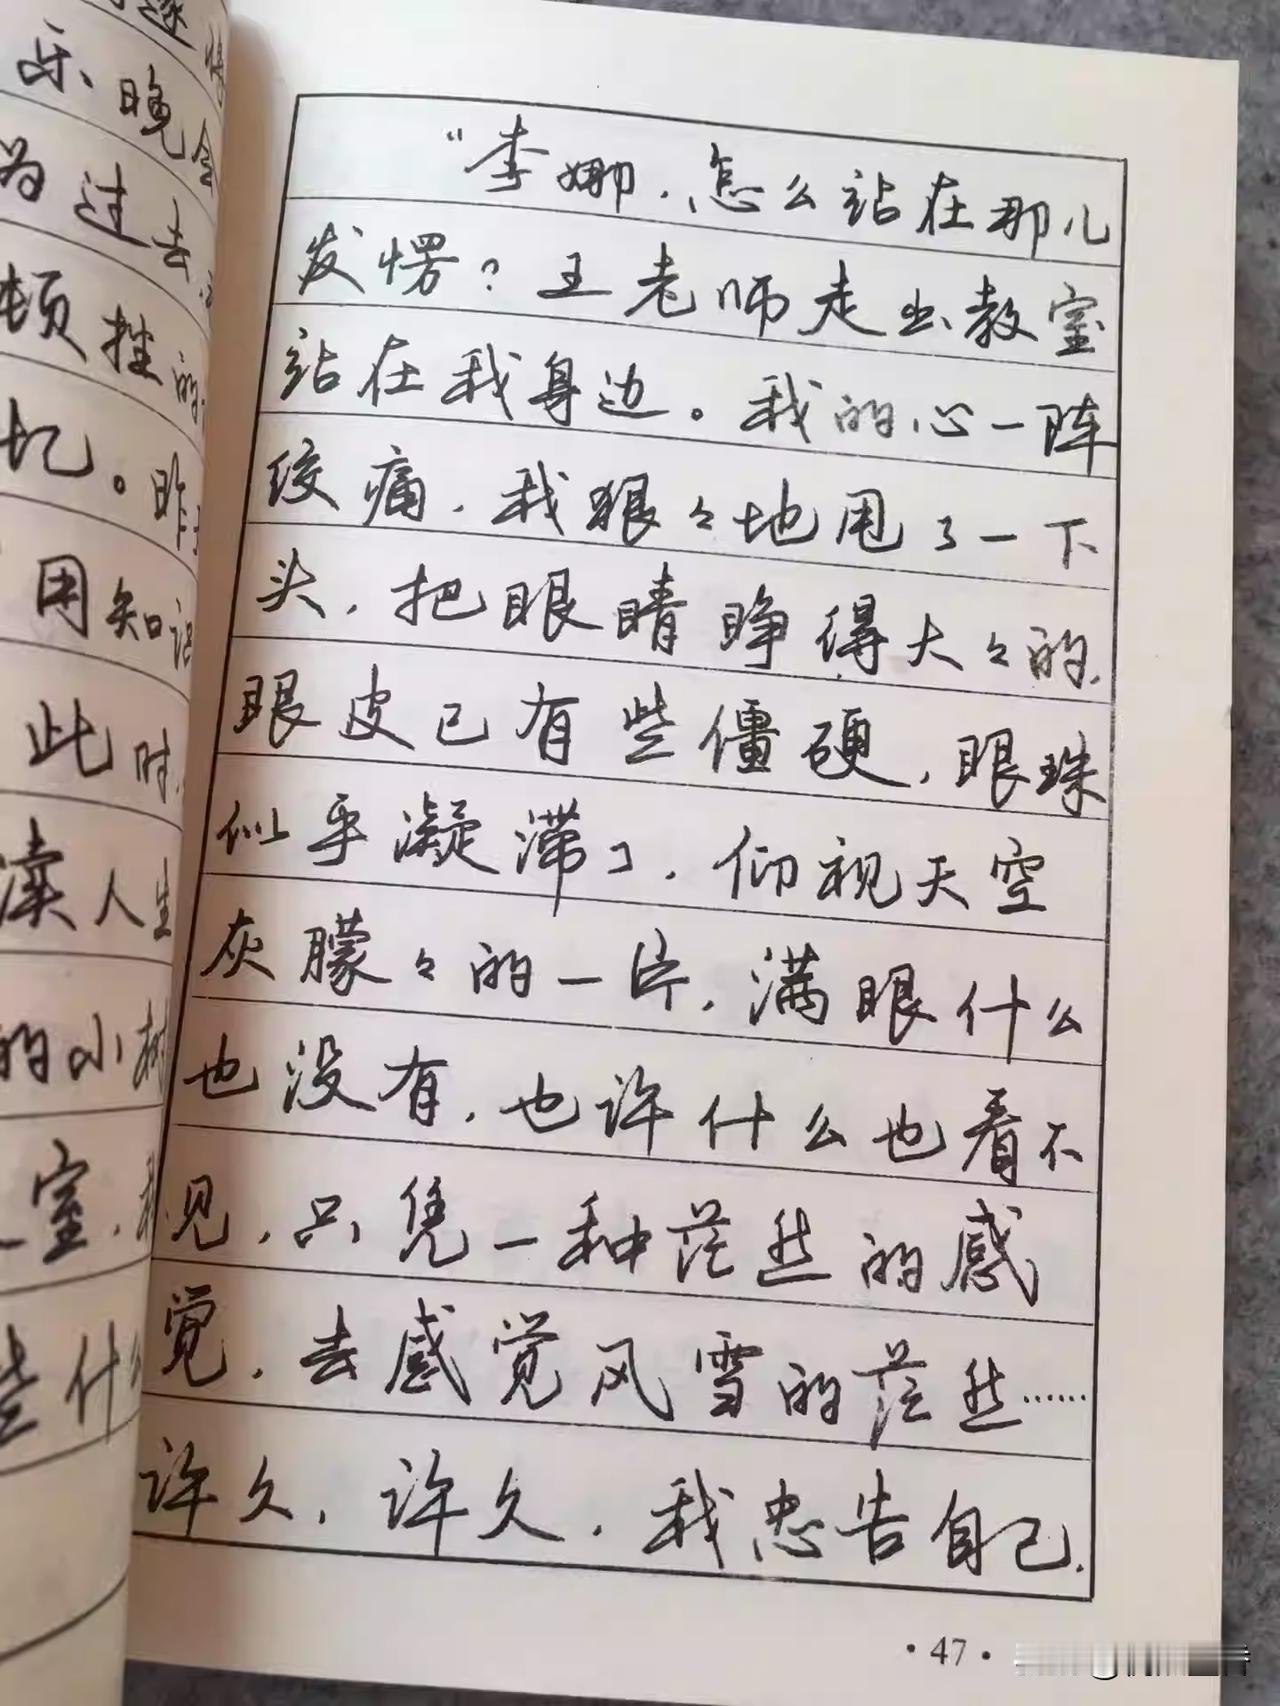 乐晚会
为过去
顿挫的
忆。昨
用知识
此时,
渎人生
的小树
室,我
些什么
"李娜,怎么站在那儿
发愣?王老师走出教室
站在我身边。我的心一阵
绞痛,我狠々地甩了一下
头,把眼睛睁得大々的,
眼皮已有些僵硬,眼珠
似乎凝滞了,仰视天空
灰朦々的一片,满眼什么
也没有,也许什么也看不
见,只凭一种茫然的感
觉,去感觉风雪的茫然……
许久,许久,我忠告自己,
·47·